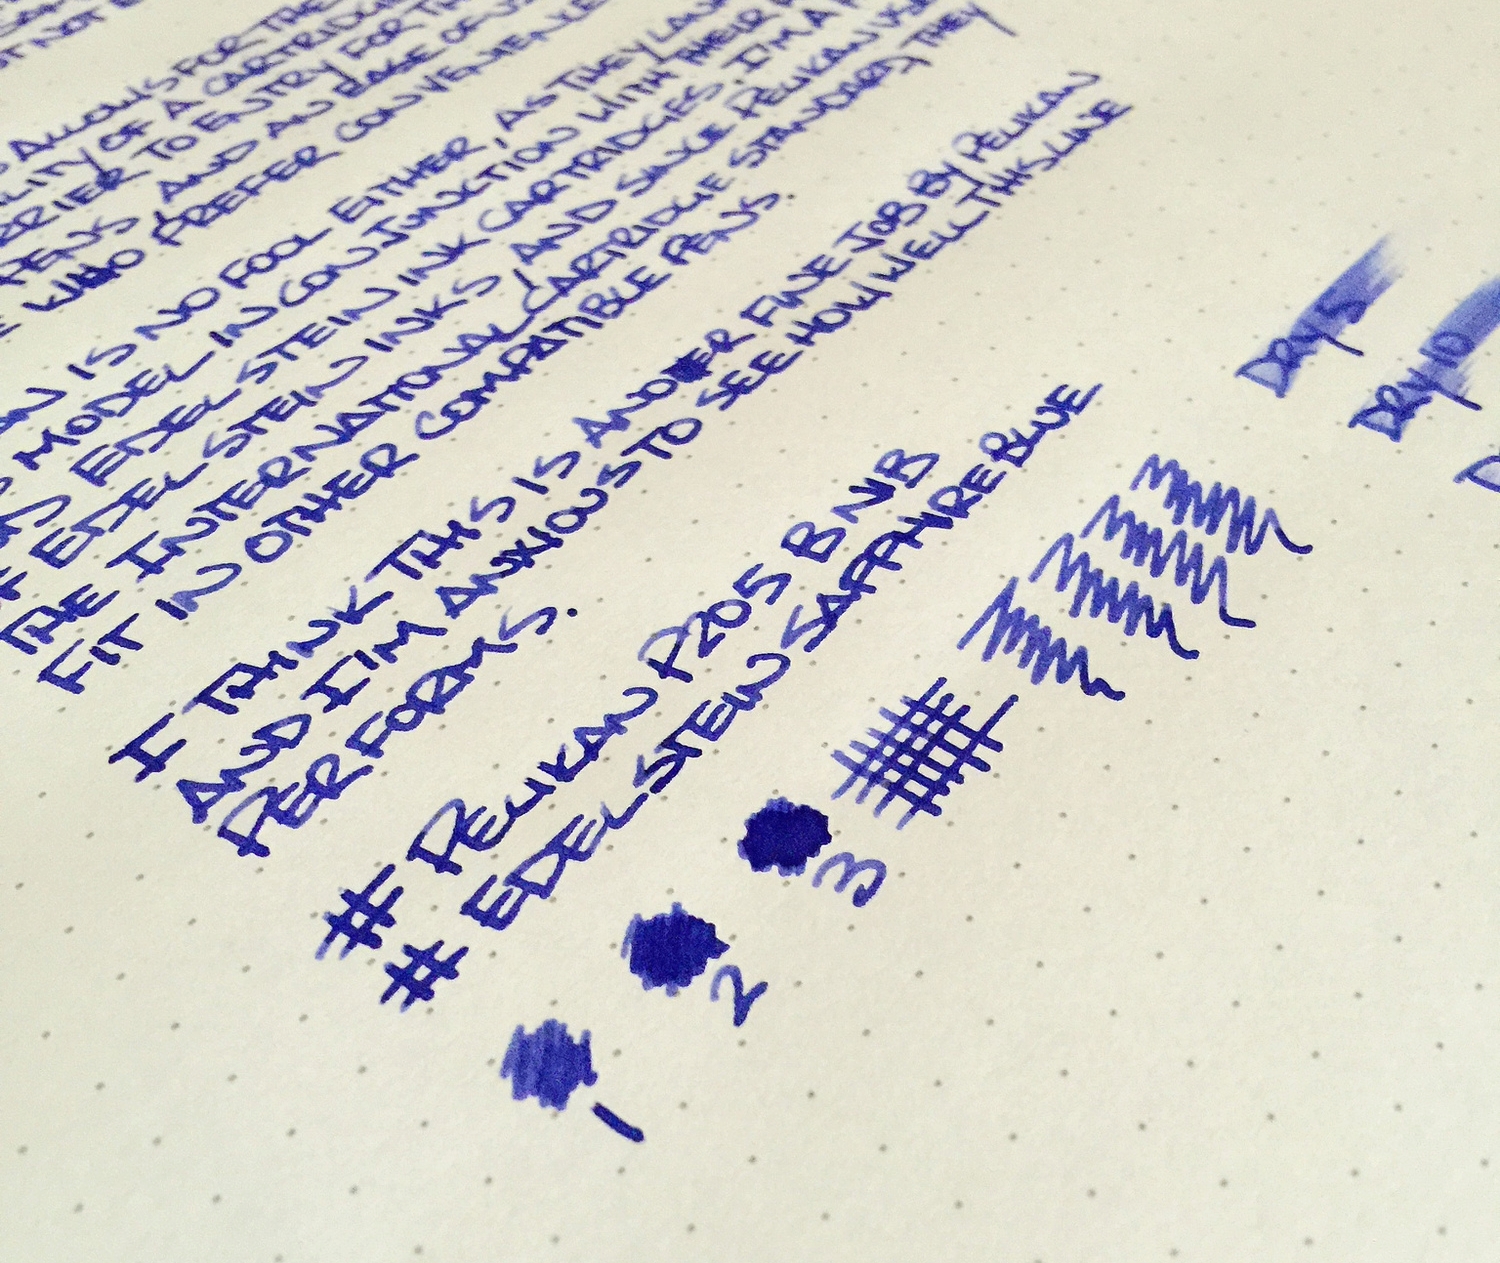 ALLOWS FOR THE
OF A CARTRIDGE
TO ENTRY FOR TH
PENS AND AN EASE OF US
WHO PREFER CONVENIENCE
IS NO FOOL EITHER, AS THEY LAUN
MODEL IN CONJUNCTION WITH THEIR
EDELSTEIN INK CARTRIDGES. I'M A
EDELSTEIN INKS, AND SINCE PELIKAN USE
THE INTERNATIONAL CARTRIDGE STANDARD, THEY
FIT IN OTHER COMPATIBLE PENS.
I THINK THIS IS ANOER FINE JOB BY PELIKAN
AND I'M ANXIOUS TO SEE HOW WELL THIS LINE
PERFORMS.
# PELIKAN P205 B NIB
# EDELSTEIN SAPPHIRE BLUE
DRY 5
DRY 10
D
3
2
1